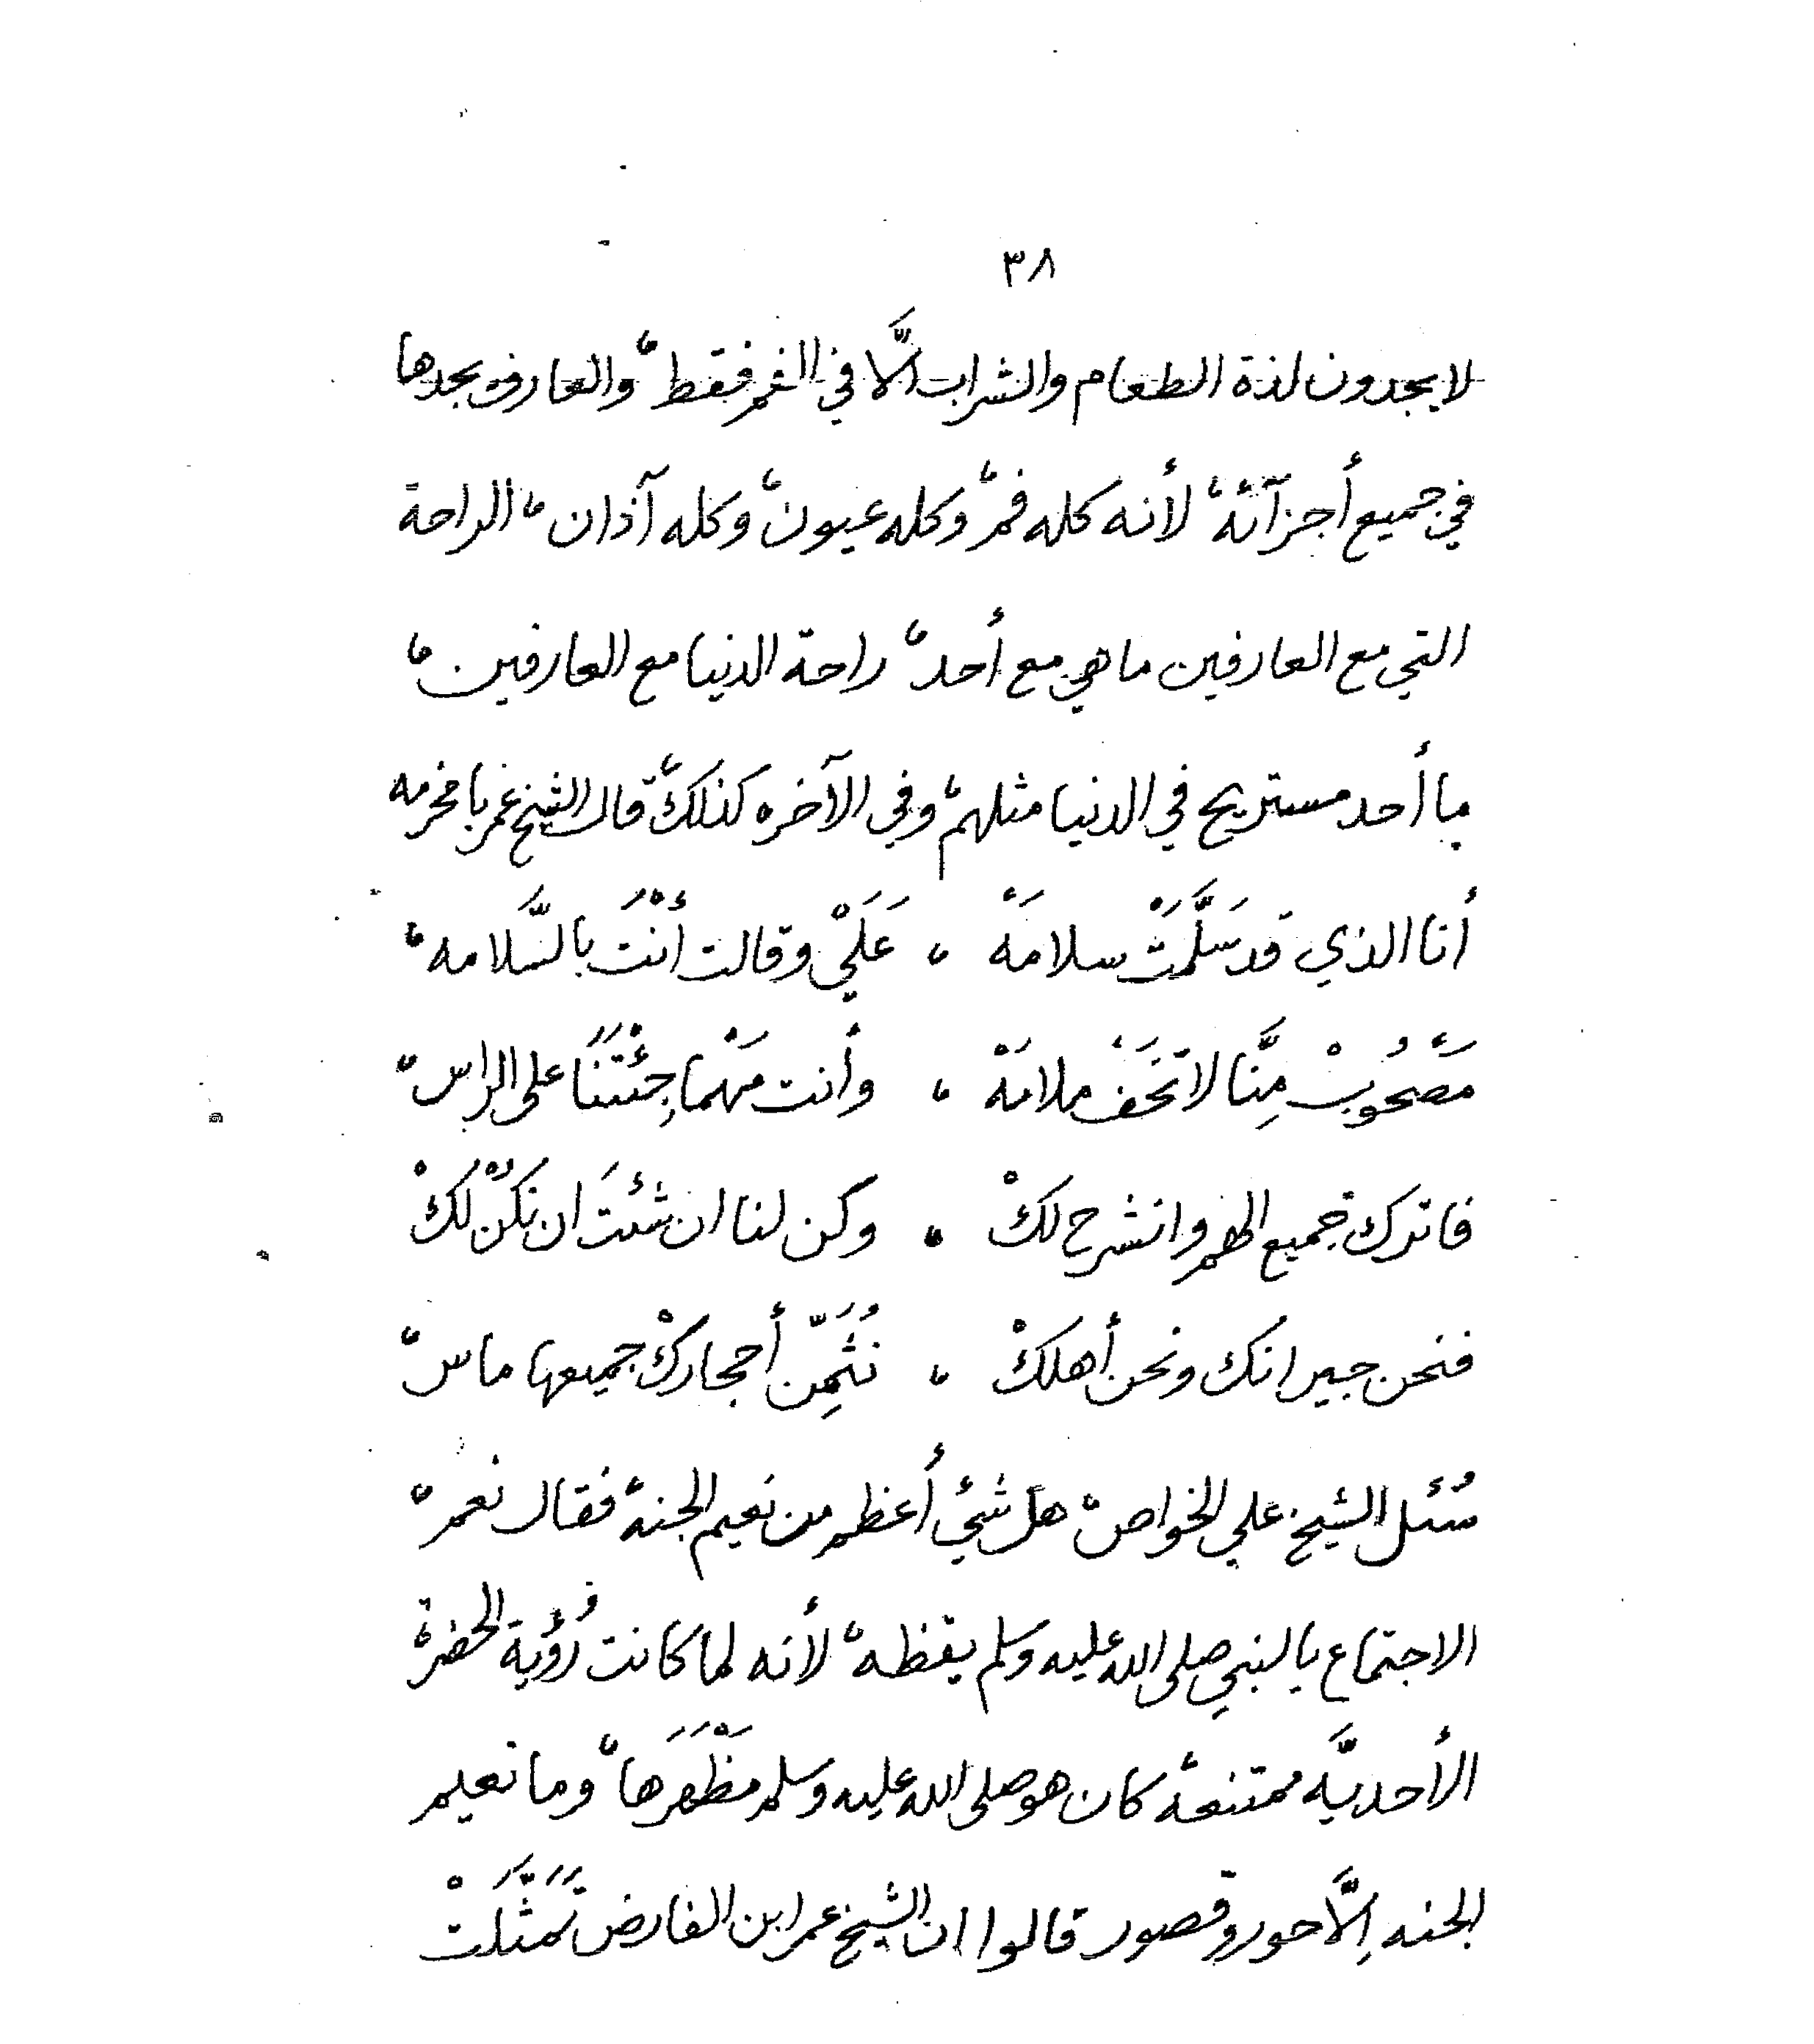 ٣٨
لا يجدون لذة الطعام والشراب الَّا في الفم فقط، والعارف يجدها
في جميع أجزآئه، لأنه كله فم، وكله عيون، وكله آذان، الراحة
التي مع العارفين ما هي مع أحد، راحة الدنيا مع العارفين،
ما أحد مستريح في الدنيا مثلهم، وفي الآخره كذلك، قال الشيخ عمر بامخرمه
أنا الذي قد سَلَّمَتْ سلامَهْ ، عَلَيْ وقالت أنْتَ بالسَّلامه،
مَصْحُوبْ مِنَّا لا تخَفْ ملامَهْ ، وأنت مَهْما جِئْتَنَا على الراس،
فاترك جميع الهم وانشرح لكْ ، وكن لنا ان شئتَ ان نكُنْ لكْ
فنحن جيرانك ونحن أهلكْ ، نُثَمِّن أحجاركْ جميعها ماس،
سُئل الشيخ علي الخواص، هل شيْ أعظم من نعيم الجنه، فقال نعم،
الاجتماع بالنبي صلى الله عليه وسلم يقظه، لأنه لما كانت رُؤية الحضرة
الأحديَّه ممتنعه، كان هو صلى الله عليه وسلم مَظْهَرَها، وما نعيم
الجنه إلَّا حور وقصور قالوا ان الشيخ عمر ابن الفارض تَمَثَّلَتْ